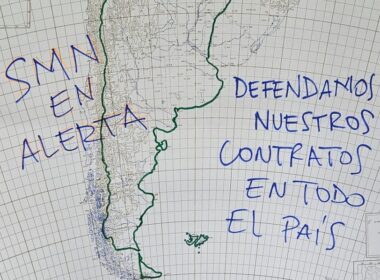 SMN
EN
ALERTA
DEFENDAMOS
NUESTROS
CONTRATOS
EN TODO
EL PAÍS